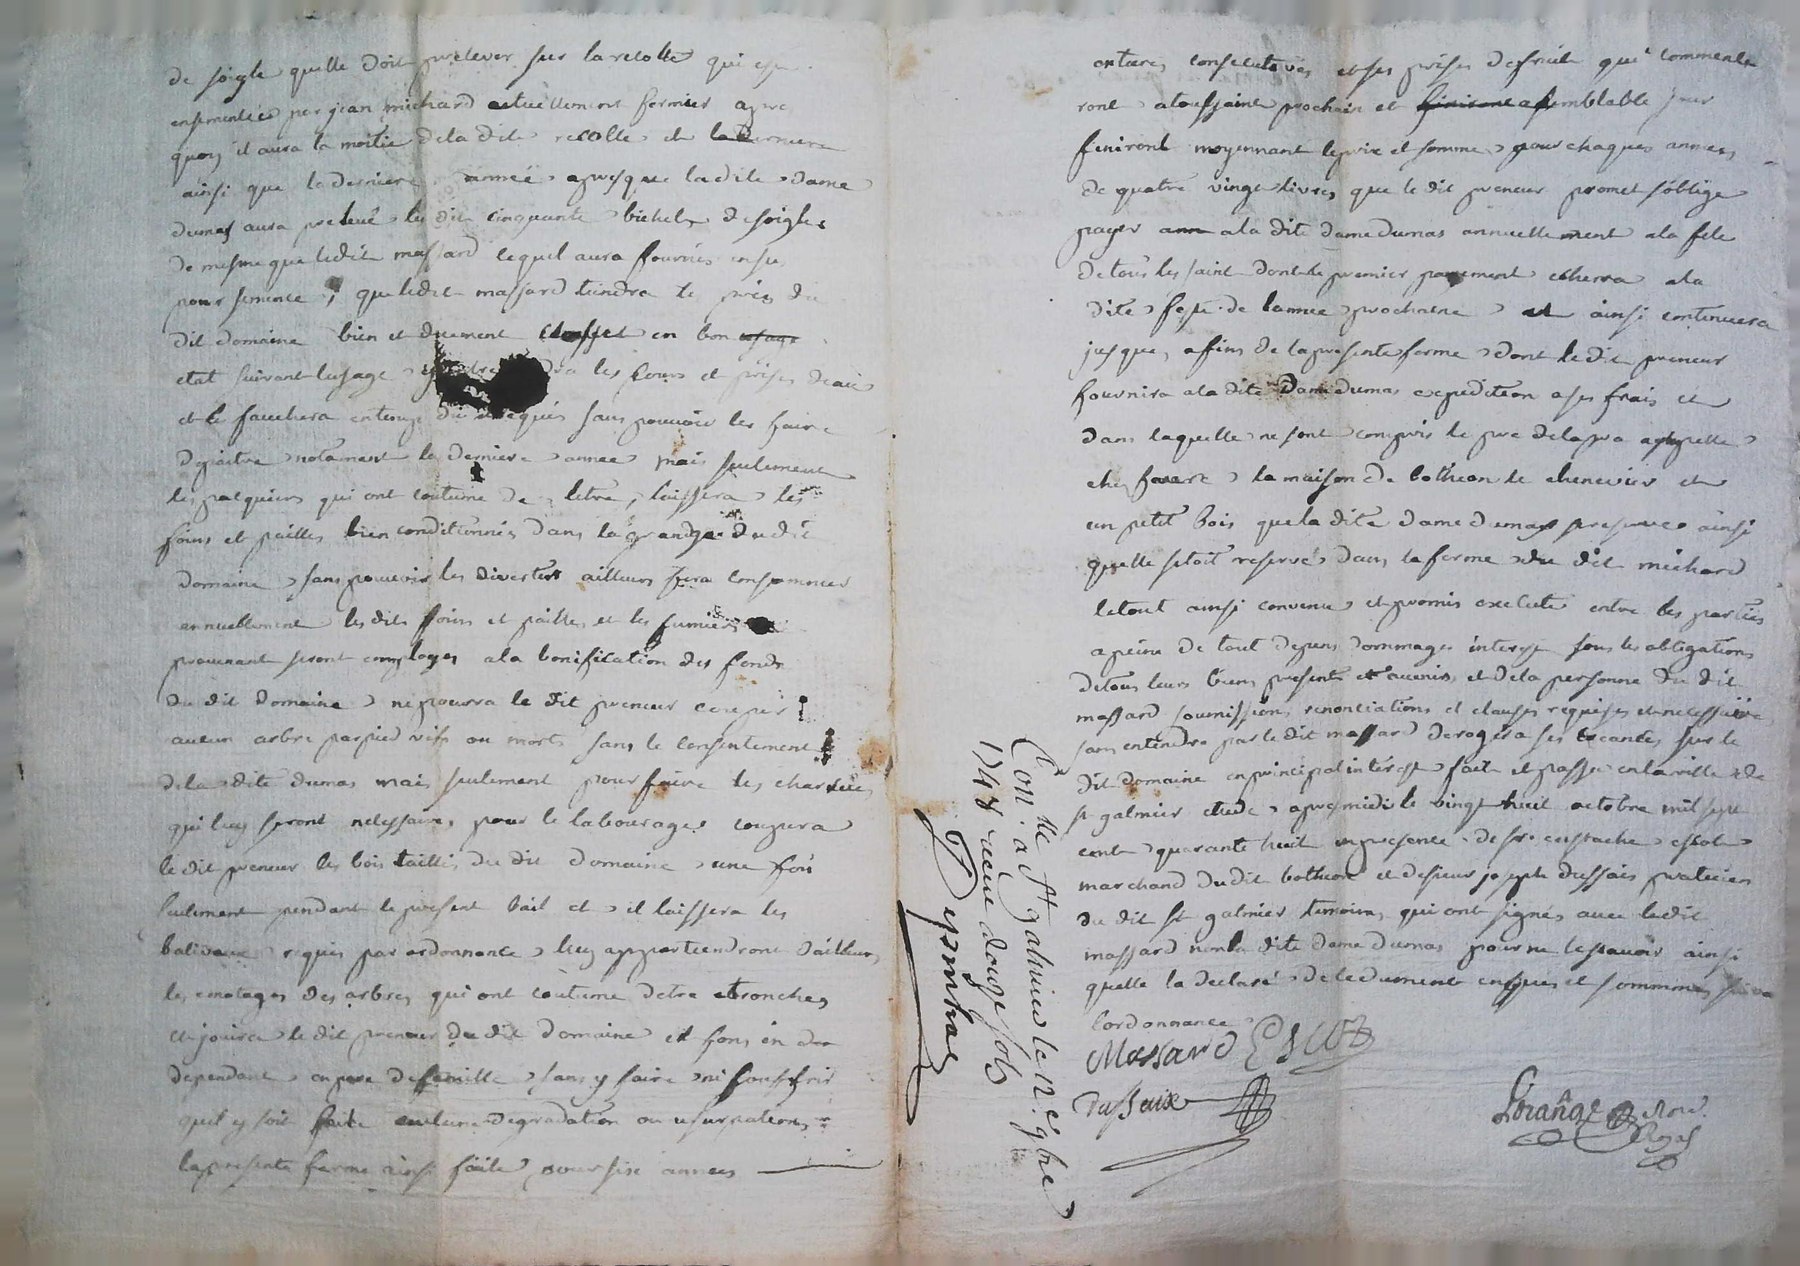 de soigle quelle doit prelever sur la recolte qui est
ensemencée par jean michard actuellement fermier apres
quoy il aura la moitié de la dite recolte et la derniere
ainsi que la derniere année apres que la dite dame
dumas aura prelevé les dits cinquante bichets de soigle
de mesme que ledit massard lequel aura fournis
pour semence, que ledit massard tiendra les prés du
dit domaine bien et duement en bon usage
etat suivant lusage les fours et prises deau
et le fauchera en temps du sans pouvoir les faire
depaitre notament la derniere année mais seulement
les pasquiers qui ont coutume de letre, laissera les
foins et pailles bien conditionnés dans la grange du dit
domaine sans pouvoir les divertir ailleurs fera consommer
annuellement les dits foins et pailles et les fumiers
provenant seront employes a la bonification des fonds
du dit domaine ne pourra le dit preneur couper
aucun arbre par pied vifs ou morts sans le consentement
de la dite dumas mais seulement pour faire les charrües
qui luy seront necessaires pour le labourage coupera
le dit preneur les bois taillis du dit domaine une fois
seulement pendant le present bail et il laissera les
baliveaux requis par ordonnance luy appartiendront d'ailleurs
les emotages des arbres qui ont coutume detre etronchés
et jouira le dit preneur du dit domaine et fons en
dependant en pere de famille sans y faire ni souffrir
quil y soit fait aucune degradation ou usurpations
la presente ferme ainsi faite pour six années
entieres consecutives et six prises de fruits qui commence
ront a toussaint prochain et finiront a semblable jour
finiront moyennant le prix et somme pour chaques années
de quatre vingt livres que le dit preneur promet s'oblige
payer a la dite dame dumas annuellement a la fete
de tous les saint dont le premier payement echerra a la
dite feste de lannée prochaine et ainsi continuera
jusques a fins de la presente ferme dont le dit preneur
fournira a la dite dame dumas expedition a ses frais et
dans laquelle ne sont compris le pre de la pra appelle
chez favert la maison de bothéon le chenevier et
un petit bois que la dite dame dumas se reserve ainsi
quelle setoit reservé dans la ferme du dit michard
le tout ainsi convenu et promis executé entre les parties
a peine de tout depens dommages interest sous les obligations
de tous leurs biens presents et avenirs et de la personne du dit
massard soumissions renonciations et clauses requises et necessaires
sans entendre par le dit massard deroger a ses creances sur le
dit domaine en principal interest fait et passé en la ville de
st galmier etude apres midi le vingt huit octobre mil sept
cent quarante huit en presence de sr eustache escot
marchand du dit botheon et de sieur joseph dussaix praticien
du dit st galmier temoins qui ont signés avec le dit
massard non la dite dame dumas pour ne le savoir ainsi
quelle la declaré de ce duement enquis et sommés suiva
l'ordonnance
Massard Escot
Dussaix
Lorange Nore
Royal
Con.lle a St galmier le 12.e 9bre
1748 receu douze sols